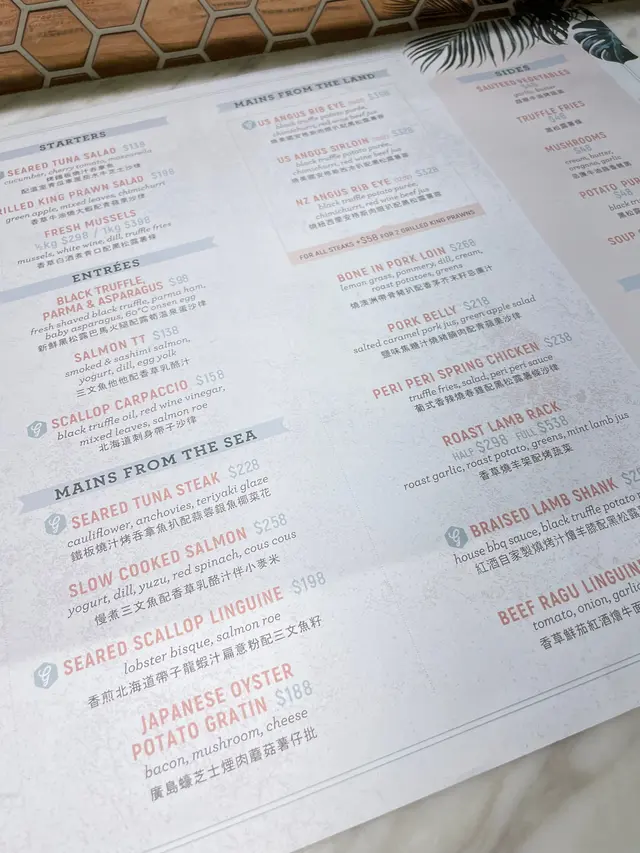 STARTERS
SEARED TUNA SALAD $138
cucumber, cherry tomato, mozzarella
GRILLED KING PRAWN SALAD $198
green apple, mixed leaves, chimichurri
FRESH MUSSELS
½kg $298 / 1kg $398
mussels, white wine, dill, truffle fries
香草白酒煮青口配黑松露薯條
ENTRÉES
BLACK TRUFFLE,
PARMA & ASPARAGUS $98
fresh shaved black truffle, parma ham,
baby asparagus, 60°C onsen egg
新鮮黑松露巴馬火腿配露筍溫泉蛋沙律
SALMON TT $138
smoked & sashimi salmon,
yogurt, dill, egg yolk
三文魚他他配香草乳酪汁
SCALLOP CARPACCIO $158
black truffle oil, red wine vinegar,
mixed leaves, salmon roe
北海道刺身帶子沙律
MAINS FROM THE SEA
SEARED TUNA STEAK $228
cauliflower, anchovies, teriyaki glaze
鐵板燒汁烤吞拿魚扒配蒜蓉銀魚椰菜花
SLOW COOKED SALMON $258
yogurt, dill, yuzu, red spinach, cous cous
慢煮三文魚配香草乳酪汁伴小麥米
SEARED SCALLOP LINGUINE $198
lobster bisque, salmon roe
香煎北海道帶子龍蝦汁扁意粉配三文魚籽
JAPANESE OYSTER
POTATO GRATIN $188
bacon, mushroom, cheese
廣島蠔芝士煙肉蘑菇薯仔批
MAINS FROM THE LAND
US ANGUS RIB EYE
black truffle potato purée,
chimichurri, red wine beef jus
US ANGUS SIRLOIN
black truffle potato purée,
chimichurri, red wine beef jus
NZ ANGUS RIB EYE $328
black truffle potato purée,
chimichurri, red wine beef jus
FOR ALL STEAKS +$58 FOR 2 GRILLED KING PRAWNS
BONE IN PORK LOIN $268
lemon grass, pommery, dill, cream,
roast potatoes, greens
PORK BELLY $218
salted caramel pork jus, green apple salad
鹽味焦糖汁燒豬腩肉配青蘋果沙律
PERI PERI SPRING CHICKEN $238
truffle fries, salad, peri peri sauce
葡式香辣燒春雞配黑松露薯條沙律
ROAST LAMB RACK
HALF $298 FULL $538
roast garlic, roast potato, greens, mint lamb jus
香草燒羊架配烤蔬菜
BRAISED LAMB SHANK
house bbq sauce, black truffle potato
紅酒自家製燒烤汁燴羊膝配黑松露
BEEF RAGU LINGUINE
tomato, onion, garlic
香草鮮茄紅酒燴牛
SIDES
SAUTEED VEGETABLES
TRUFFLE FRIES
MUSHROOMS
cream, butter,
oregano, parm
POTATO PUR
black truffle
SOUP